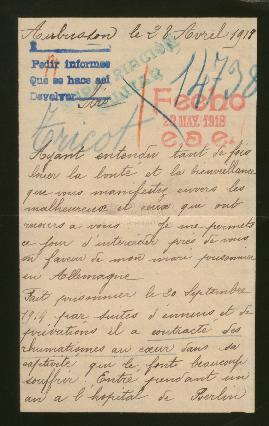 Aubusson le 28 Avril 1918
Pedir informes
Que se hace así
Devolver
Sire
14738
Fecho
22 MAY. 1918
Tricot
Ayant entendu tant de fois
louer la bonté et la bienveillance
que vous manifestez envers les
malheureux et ceux qui ont
recours à vous Je me permets
ce jour d'intercéder près de vous
en faveur de mon mari prisonnier
en Allemagne
Fait prisonnier le 20 Septembre
par suites d'ennuis et de
privations il a contracté des
rhumatismes au cœur dans sa
captivité, qui le font beaucoup
souffrir. Entré pendant un
an a l'hopital de Berlin